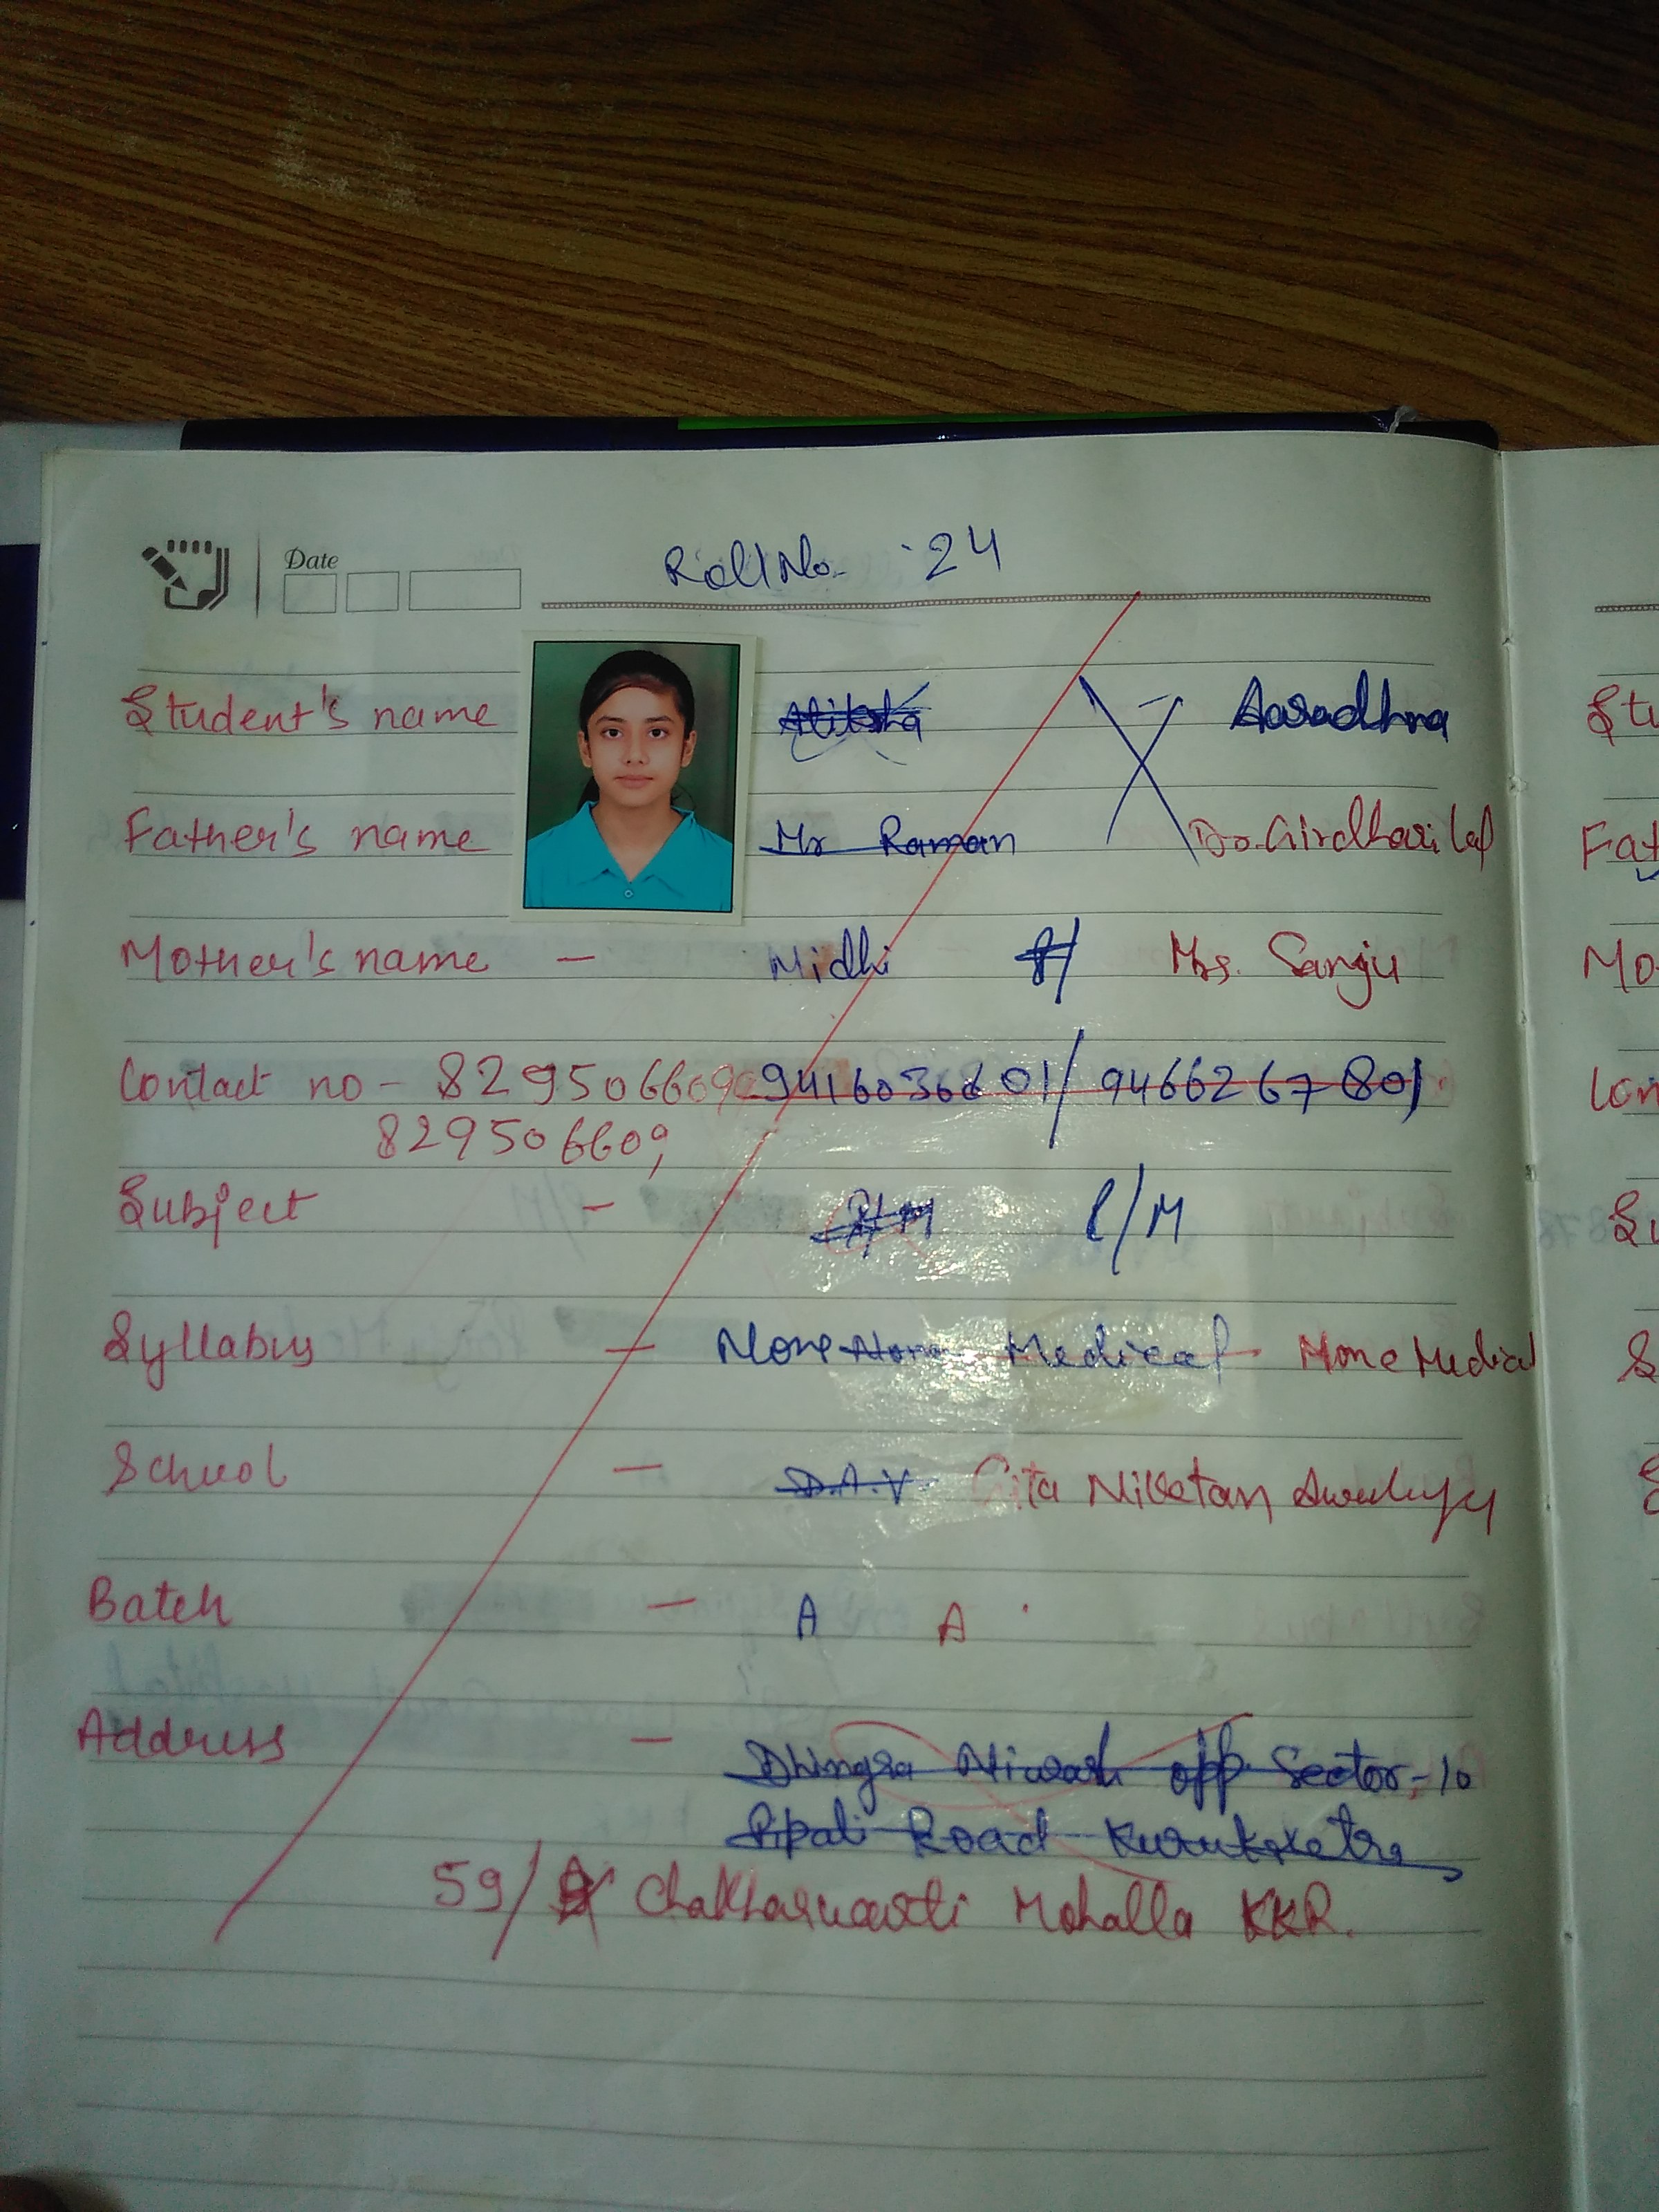 Date
Roll No. 24
Student's name Aaradhna
Father's name Mr Raman Dr. Girdhari Lal
Mother's name - Nidhi Mrs. Sanju
Contact no - 829506609 / 9466267801
829506609
Subject - P/M
Syllabus - None Medical None Medical
School - D.A.V Gita Niketan
Batch - A A
Address - Dhingra Niwash opp. Sector-10
Pipali Road Kurukshetra
59/ Chakharwarti Mohalla KKR.
Stu
Fat
Mo
Con
Su
S
S